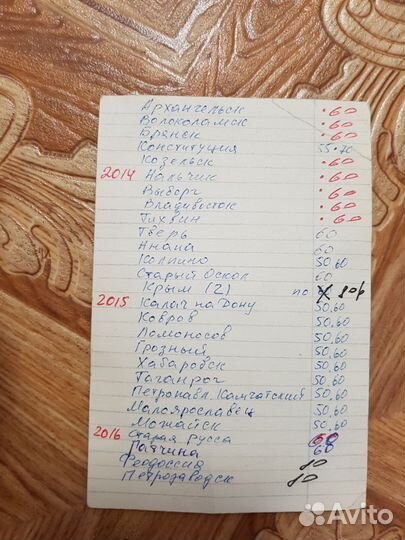 Архангельск · 60
Волоколамск · 60
Брянск · 60
Конституция 55.70
Козельск · 60
2014 Нальчик · 60
Выборг · 60
Владивосток · 60
Тихвин · 60
Тверь 60
Анапа 60
Колпино 50,60
Старый Оскол 60
Крым (2) по 80р
2015 Калач на Дону 50,60
Ковров 50,60
Ломоносов 50,60
Грозный 50,60
Хабаровск 50,60
Таганрог 50,60
Петропавл. Камчатский 50,60
Малоярославец 50,60
Можайск 50,60
2016 Старая Русса 60
Гатчина 60
Феодоссия 10
Петрозаводск 10
Avito